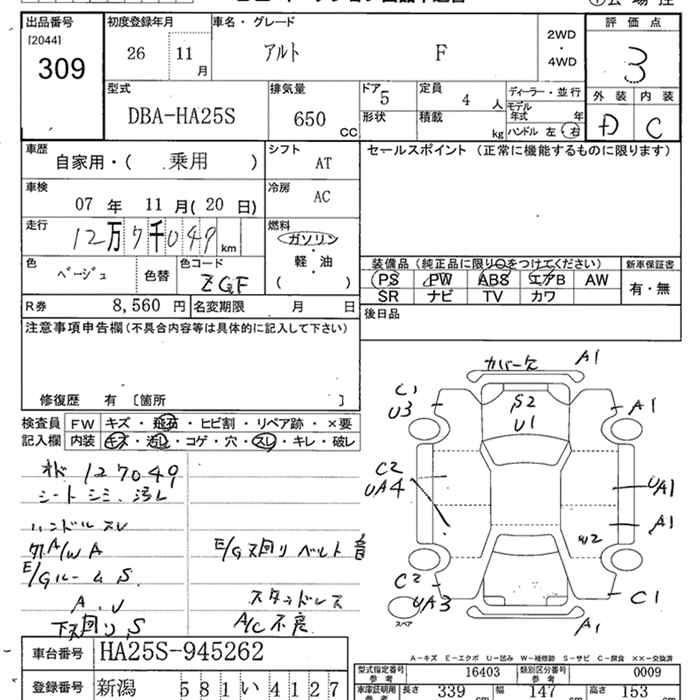 出品番号 初度登録年月 車名・グレード 評価点
[2044]
309 26 11月 アルト F 2WD・4WD 3
外装 内装
型式 排気量 ドア 定員 ディーラー・並行
DBA-HA25S 650 cc 5 4人 モデル年式 年
形状 積載 kg ハンドル 左・右 D C
車歴 シフト セールスポイント (正常に機能するものに限ります)
自家用・( 乗用 ) AT
車検 冷房
07年 11月(20日) AC
走行 燃料
12万7千049km ガソリン・軽・油
( )
色 色コード 装備品 (純正品に限り○をつけてください) 新車保証書
ベージュ 色替 ZGF PS PW ABS エアB AW 有・無
SR ナビ TV カワ
R券 8,560円 名変期限 月 日 後日品
注意事項申告欄(不具合内容等は具体的に記入して下さい)
修復歴 有 〔箇所 〕
検査員 FW キズ・飛石・ヒビ割・リペア跡・×要
記入欄 内装 キズ・汚し・コゲ・穴・スレ・キレ・破レ
カバーケ A1
C1 S2 A1
U3 U1
オド 127049
シート シミ、汚レ C2
UA4 UA1
ハンドル スレ A1
A/W A E/G廻り ベルト音 W2
E/Gルーム S
C2
A、U スタッドレス UA3 C1
下廻り S A/C不良 スペア A1
A-キズ E-エクボ U-凹み W-補修跡 S-サビ C-腐食 ××-交換済
車台番号 HA25S-945262 型式指定番号 参考 16403 類別区分番号 参考 0009
登録番号 新潟 581 い 4127 車庫証明用 参考 長さ 339cm 幅 147cm 高さ 153cm